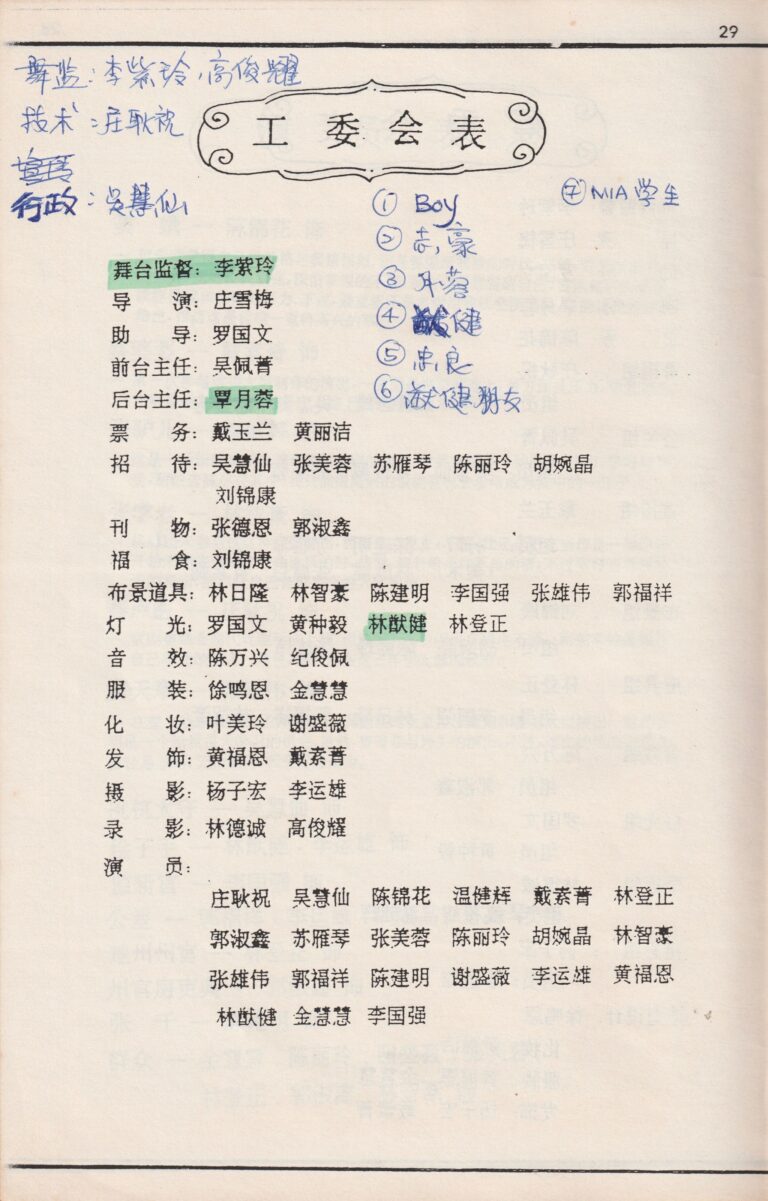 29
舞监：李紫玲，高俊耀
技术：庄耿祝
行政：吴慧仙
工委会表
① Boy
② 志豪
③ 月蓉
④ 猷健
⑤ 忠良
⑥ 猷健朋友
⑦ MIA 学生
舞台监督：李紫玲
导　　演：庄雪梅
助　　导：罗国文
前台主任：吴佩菁
后台主任：覃月蓉
票　　务：戴玉兰　黄丽洁
招　　待：吴慧仙　张美蓉　苏雁琴　陈丽玲　胡婉晶
刘锦康
刊　　物：张德恩　郭淑鑫
福　　食：刘锦康
布景道具：林日隆　林智豪　陈建明　李国强　张雄伟　郭福祥
灯　　光：罗国文　黄种毅　林猷健　林登正
音　　效：陈万兴　纪俊佩
服　　装：徐鸣恩　金慧慧
化　　妆：叶美玲　谢盛薇
发　　饰：黄福恩　戴素菁
摄　　影：杨子宏　李运雄
录　　影：林德诚　高俊耀
演　　员：
庄耿祝　吴慧仙　陈锦花　温健辉　戴素菁　林登正
郭淑鑫　苏雁琴　张美蓉　陈丽玲　胡婉晶　林智豪
张雄伟　郭福祥　陈建明　谢盛薇　李运雄　黄福恩
林猷健　金慧慧　李国强